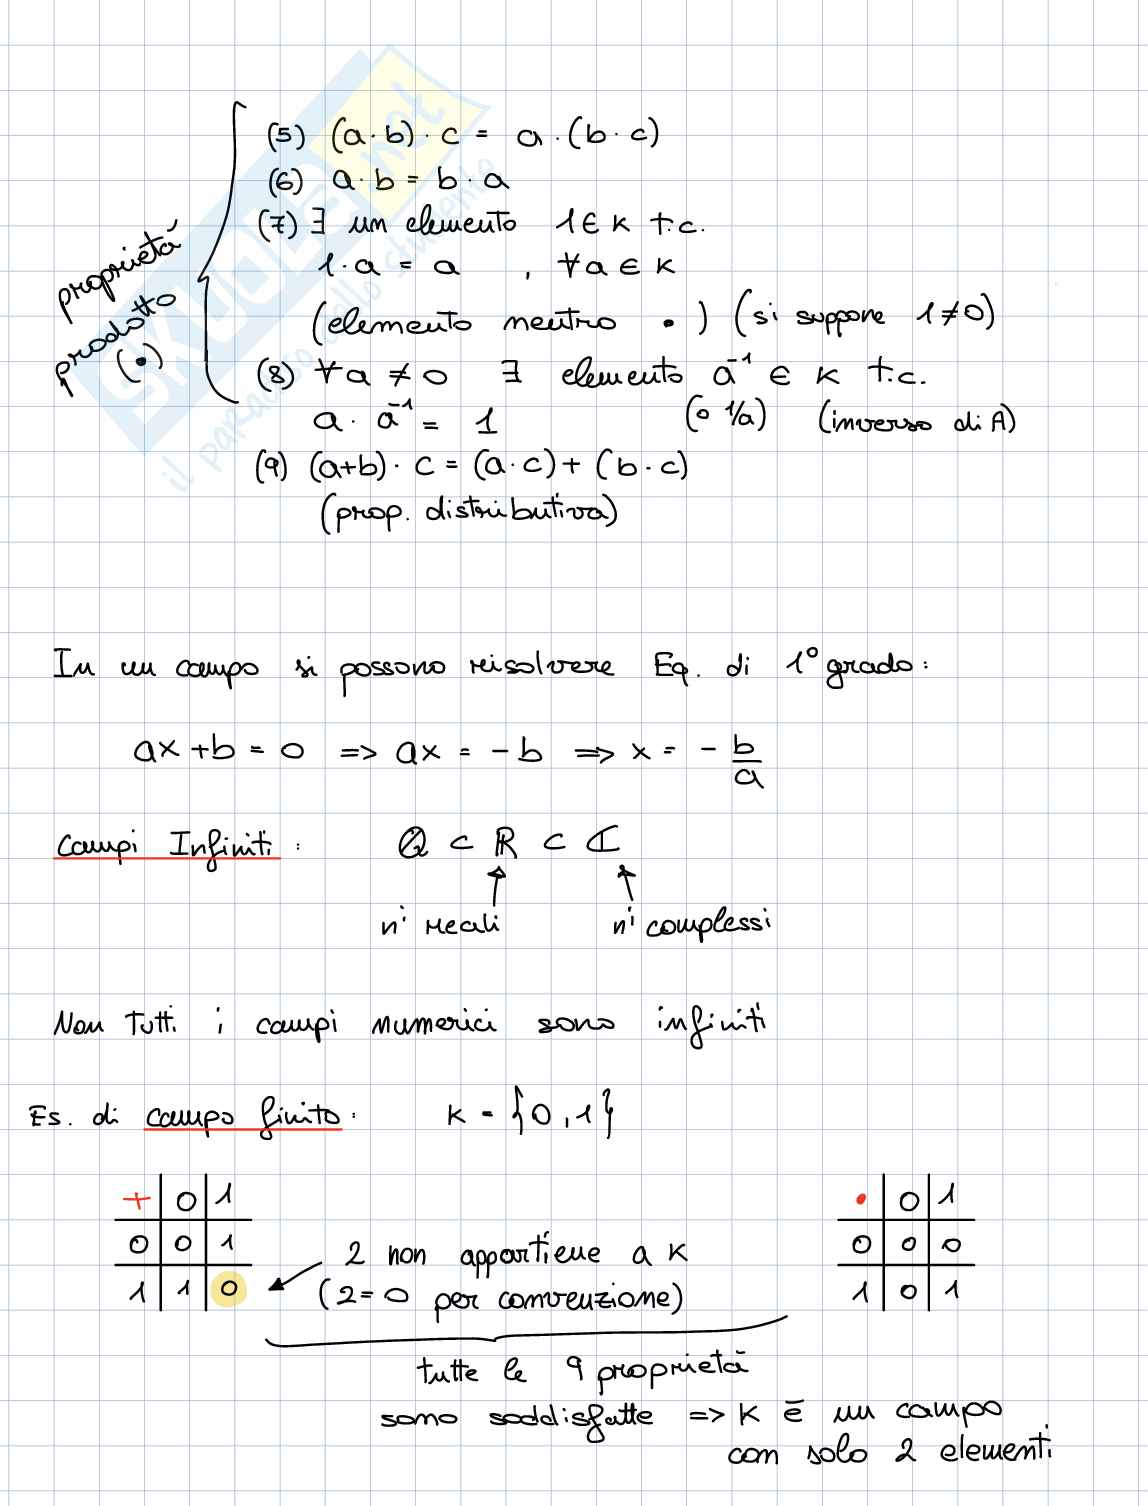 proprietá
prodotto
(•)
(5) (a·b)·c = a·(b·c)
(6) a·b = b·a
(7) ∃ un elemento 1∈K t.c.
1·a = a , ∀a∈K
(elemento neutro •) (si suppone 1≠0)
(8) ∀a≠0 ∃ elemento a⁻¹ ∈ K t.c.
a·a⁻¹ = 1 (o 1/a) (inverso di A)
(9) (a+b)·c = (a·c)+(b·c)
(prop. distributiva)
In un campo si possono risolvere Eq. di 1° grado:
ax+b=0 => ax = -b => x = - b/a
Campi Infiniti: ℚ ⊂ ℝ ⊂ ℂ
n' reali n' complessi
Non tutti i campi numerici sono infiniti
Es. di campo finito: K = {0,1}
+ 0 1
0 0 1
1 1 0
2 non appartiene a K
(2=0 per convenzione)
• 0 1
0 0 0
1 0 1
tutte le 9 proprietà
sono soddisfatte => K è un campo
con solo 2 elementi
SKUOLA.net
il paradiso dello studente